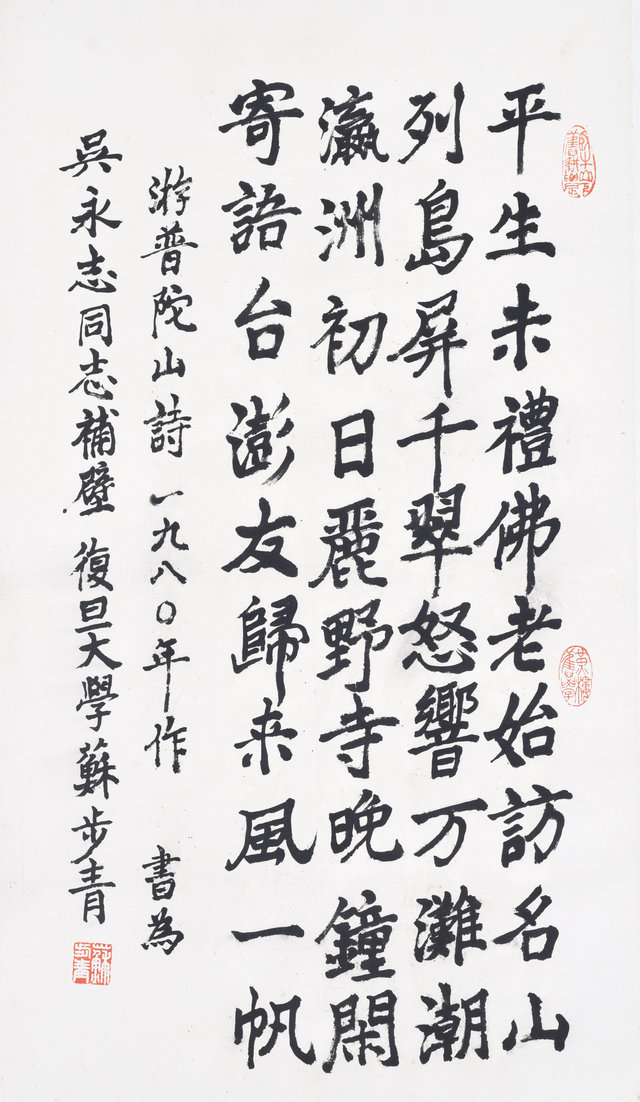 平生未禮佛老始訪名山
列島屏千翠怒響万灘潮
瀛洲初日麗野寺晚鐘閑
寄語台澎友歸来風一帆
游普陀山詩 一九八〇年作 書為
吳永志同志補壁 復旦大學蘇步青
蘇步青